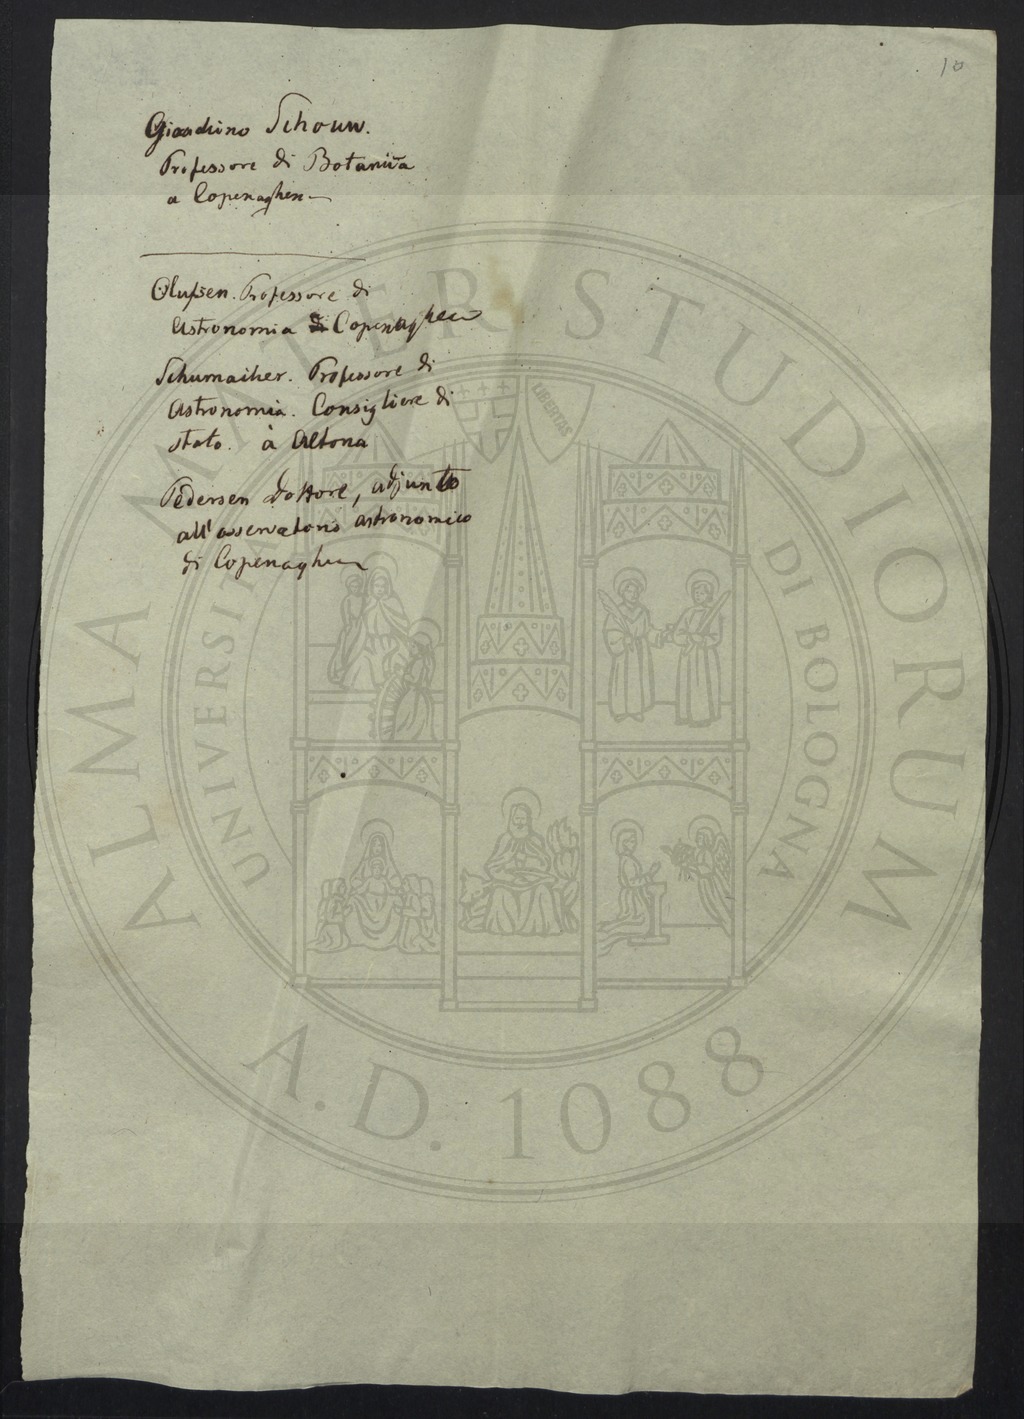 10
Gioachino Schouw.
Professore di Botanica
a Copenaghen
Olufsen. Professore di
Astronomia di Copenaghen
Schumacher. Professore di
Astronomia. Consigliere di
stato. à Altona
Pedersen Dottore, adjunto
all'osservatorio astronomico
di Copenaghen
ALMA MATER STUDIORUM
UNIVERSITÀ DI BOLOGNA
LIBERTAS
A.D. 1088